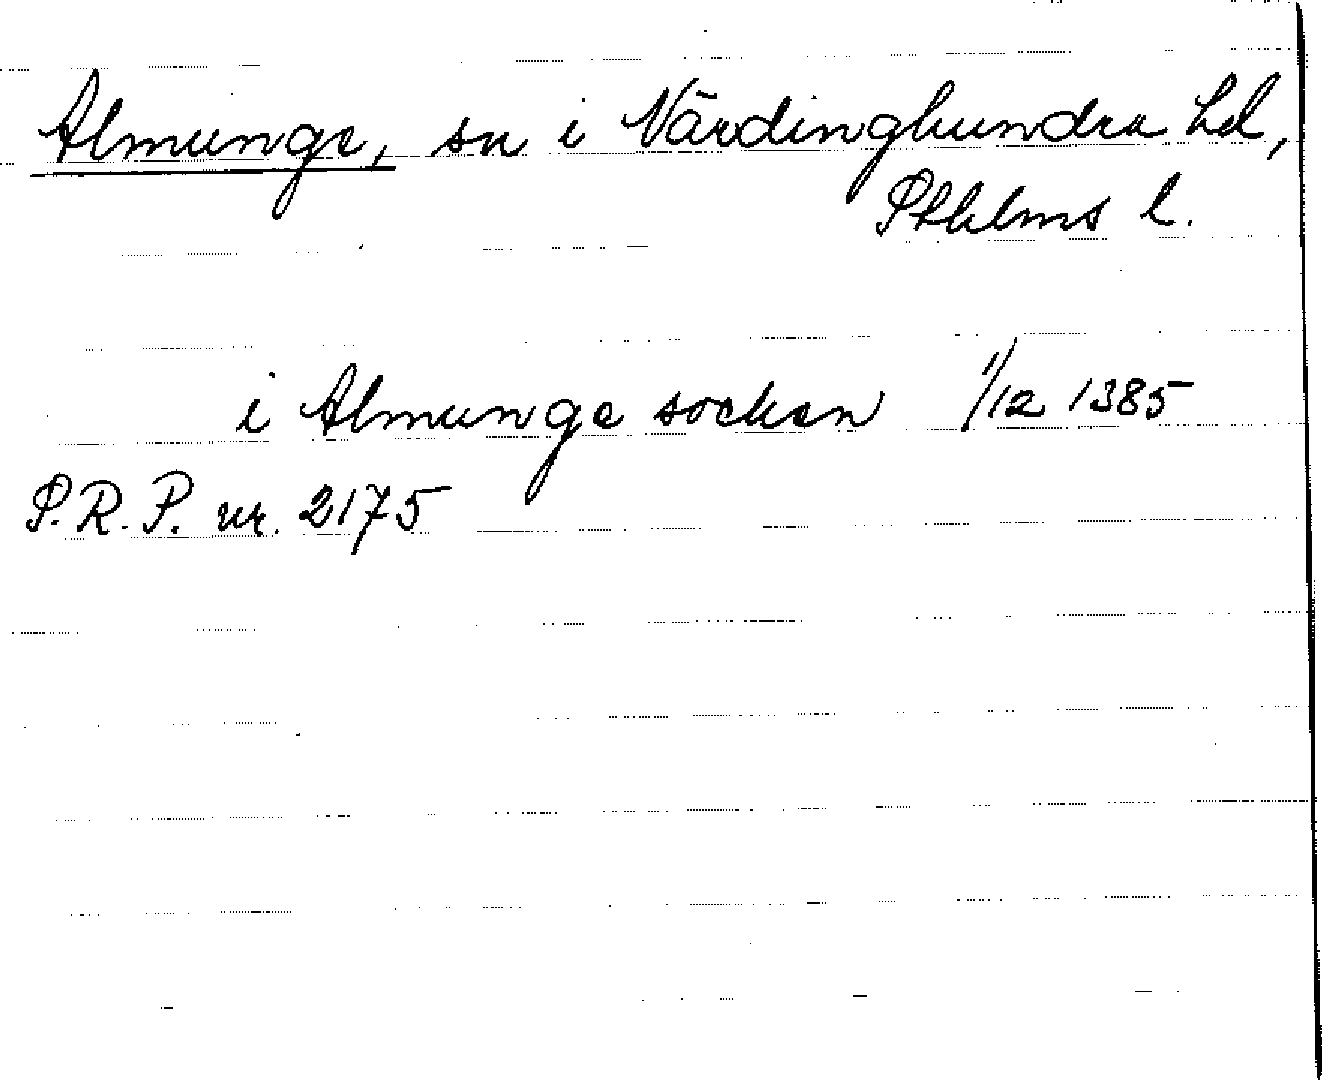 Almunge, sn i Närdinghundra hd,
Sthlms l.
i Almunge socken 1/12 1385
S.R.P. nr. 2175